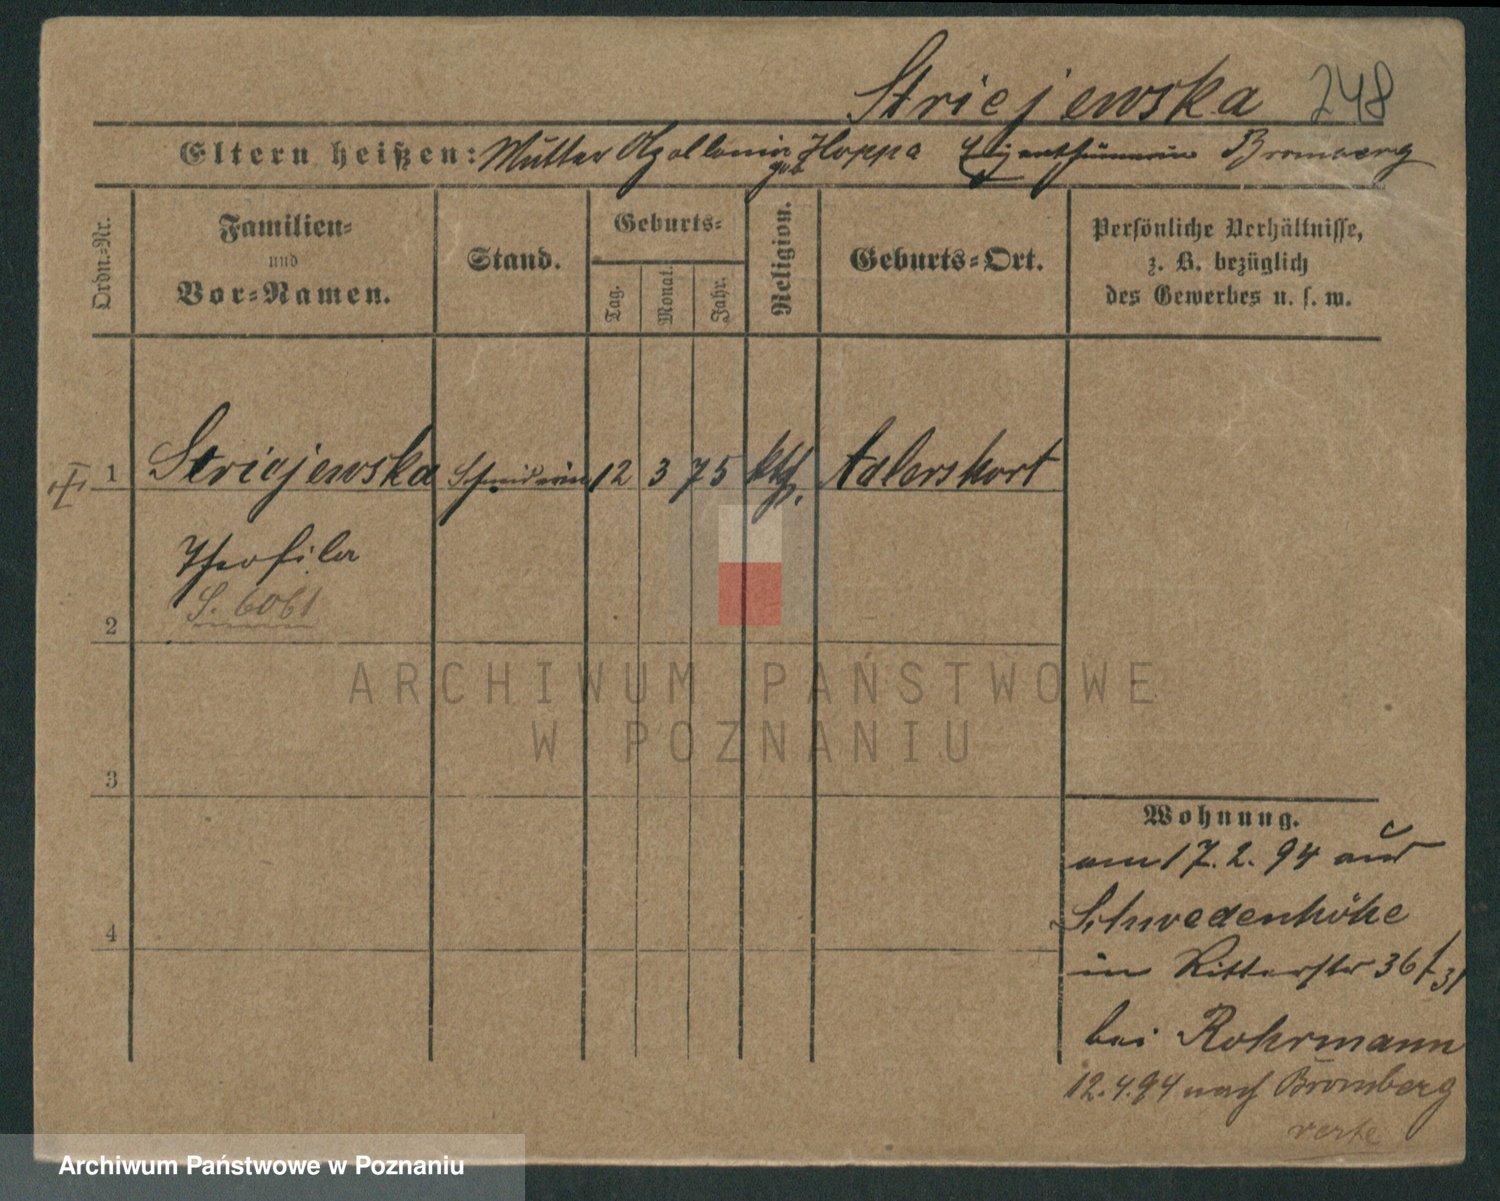 Striejewska 248
Eltern heißen: Mutter Apollonia geb Hoppa Eigenthümerin Bromberg
Ordn.-Nr.
Familien-
und
Vor-Namen.
Stand.
Geburts-
Tag.
Monat.
Jahr.
Religion.
Geburts-Ort.
Persönliche Verhältnisse,
z. B. bezüglich
des Gewerbes u. s. w.
1 Striejewska Schneiderin 12 3 75 kth. Adlershort
Theofila
S. 6061
2
ARCHIWUM PAŃSTWOWE
W POZNANIU
3
Wohnung.
am 17. 2. 94 aus
Schwedenhöhe
4
in Ritterstr 36 / 31
bei Rohrmann
12.4.94 nach Bromberg
verte
Archiwum Państwowe w Poznaniu